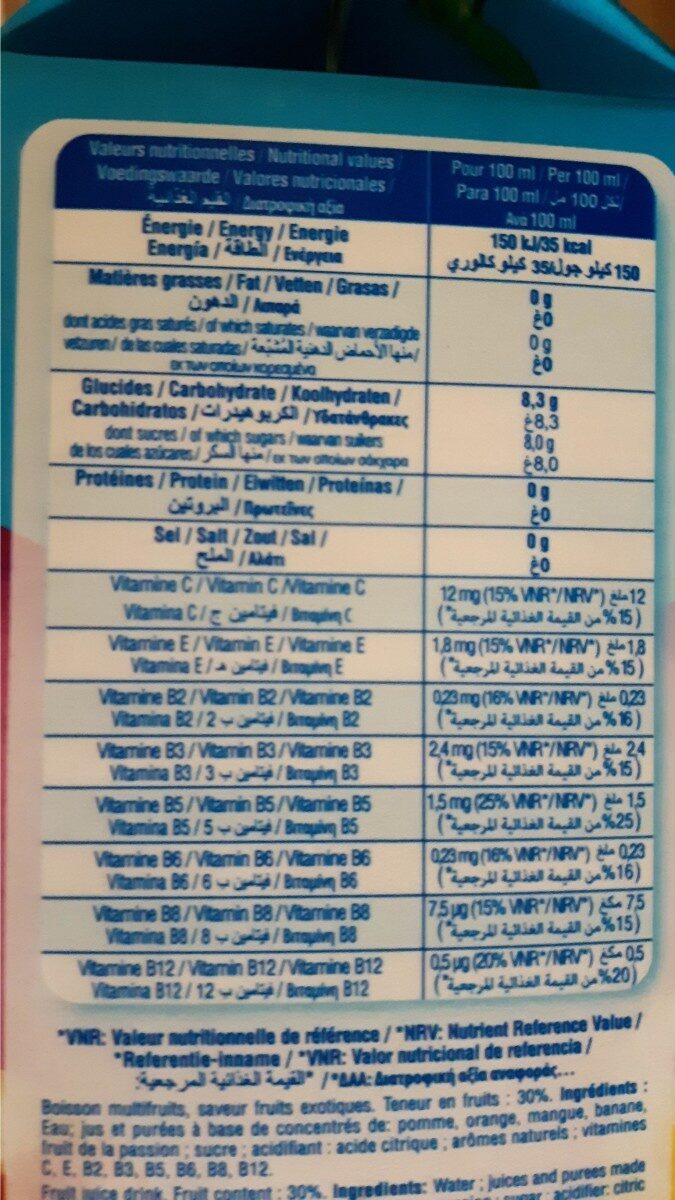 Valeurs nutritionnelles / Nutritional values /
Voedingswaarde / Valores nutricionales /
القيم الغذائية / Διατροφική αξία
Pour 100 ml / Per 100 ml /
Para 100 ml / لكل 100 مل /
Ανά 100 ml
Énergie / Energy / Energie
Energía / الطاقة / Ενέργεια
150 kJ/35 kcal
150 كيلو جول/35 كيلو كالوري
Matières grasses / Fat / Vetten / Grasas /
الدهون / Λιπαρά
0 g
0غ
dont acides gras saturés / of which saturates / waarvan verzadigde
vetzuren / de las cuales saturadas / منها الأحماض الدهنية المُشبّعة /
εκ των οποίων κορεσμένα
0 g
0غ
Glucides / Carbohydrate / Koolhydraten /
Carbohidratos / الكربوهيدرات / Υδατάνθρακες
8,3 g
8,3غ
dont sucres / of which sugars / waarvan suikers
de los cuales azúcares / منها السكر / εκ των οποίων σάκχαρα
8,0 g
8,0غ
Protéines / Protein / Eiwitten / Proteínas /
البروتين / Πρωτεΐνες
0 g
0غ
Sel / Salt / Zout / Sal /
الملح / Αλάτι
0 g
0غ
Vitamine C / Vitamin C / Vitamine C
Vitamina C / فيتامين ج / Βιταμίνη C
12 mg (15% VNR*/NRV*) 12 ملغ
(15% من القيمة الغذائية المرجعية*)
Vitamine E / Vitamin E / Vitamine E
Vitamina E / فيتامين هـ / Βιταμίνη E
1,8 mg (15% VNR*/NRV*) 1,8 ملغ
(15% من القيمة الغذائية المرجعية*)
Vitamine B2 / Vitamin B2 / Vitamine B2
Vitamina B2 / فيتامين ب 2 / Βιταμίνη B2
0,23 mg (16% VNR*/NRV*) 0,23 ملغ
(16% من القيمة الغذائية المرجعية*)
Vitamine B3 / Vitamin B3 / Vitamine B3
Vitamina B3 / فيتامين ب 3 / Βιταμίνη B3
2,4 mg (15% VNR*/NRV*) 2,4 ملغ
(15% من القيمة الغذائية المرجعية*)
Vitamine B5 / Vitamin B5 / Vitamine B5
Vitamina B5 / فيتامين ب 5 / Βιταμίνη B5
1,5 mg (25% VNR*/NRV*) 1,5 ملغ
(25% من القيمة الغذائية المرجعية*)
Vitamine B6 / Vitamin B6 / Vitamine B6
Vitamina B6 / فيتامين ب 6 / Βιταμίνη B6
0,23 mg (16% VNR*/NRV*) 0,23 ملغ
(16% من القيمة الغذائية المرجعية*)
Vitamine B8 / Vitamin B8 / Vitamine B8
Vitamina B8 / فيتامين ب 8 / Βιταμίνη B8
7,5 µg (15% VNR*/NRV*) 7,5 مكغ
(15% من القيمة الغذائية المرجعية*)
Vitamine B12 / Vitamin B12 / Vitamine B12
Vitamina B12 / فيتامين ب 12 / Βιταμίνη B12
0,5 µg (20% VNR*/NRV*) 0,5 مكغ
(20% من القيمة الغذائية المرجعية*)
*VNR: Valeur nutritionnelle de référence / *NRV: Nutrient Reference Value /
*Referentie-inname / *VNR: Valor nutricional de referencia /
*القيمة الغذائية المرجعية: / *ΔΑΑ: Διατροφική αξία αναφοράς...
Boisson multifruits, saveur fruits exotiques. Teneur en fruits : 30%. Ingrédients :
Eau; jus et purées à base de concentrés de: pomme, orange, mangue, banane,
fruit de la passion ; sucre ; acidifiant : acide citrique ; arômes naturels ; vitamines
C, E, B2, B3, B5, B6, B8, B12.
Fruit juice drink. Fruit content : 30%. Ingredients: Water ; juices and purees made
acidifier: citric